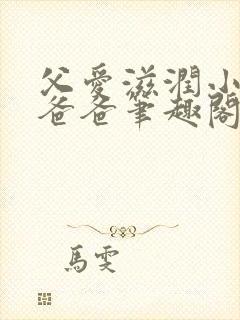 父愛滋潤小
爸爸筆趣閣
馬雯